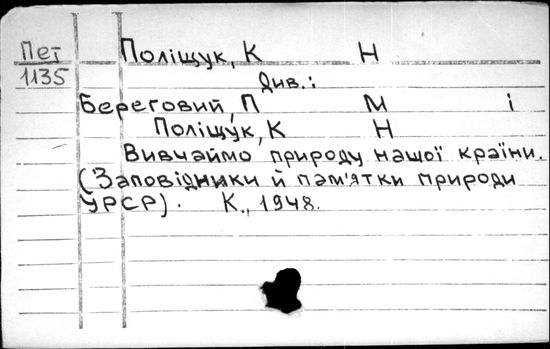 Пет Поліщук, К Н
1135 Див.:
Береговий, П М і
Поліщук, К Н
Вивчаймо природу нашої країни.
(Заповідники й пам'ятки природи
УРСР). К., 1948.